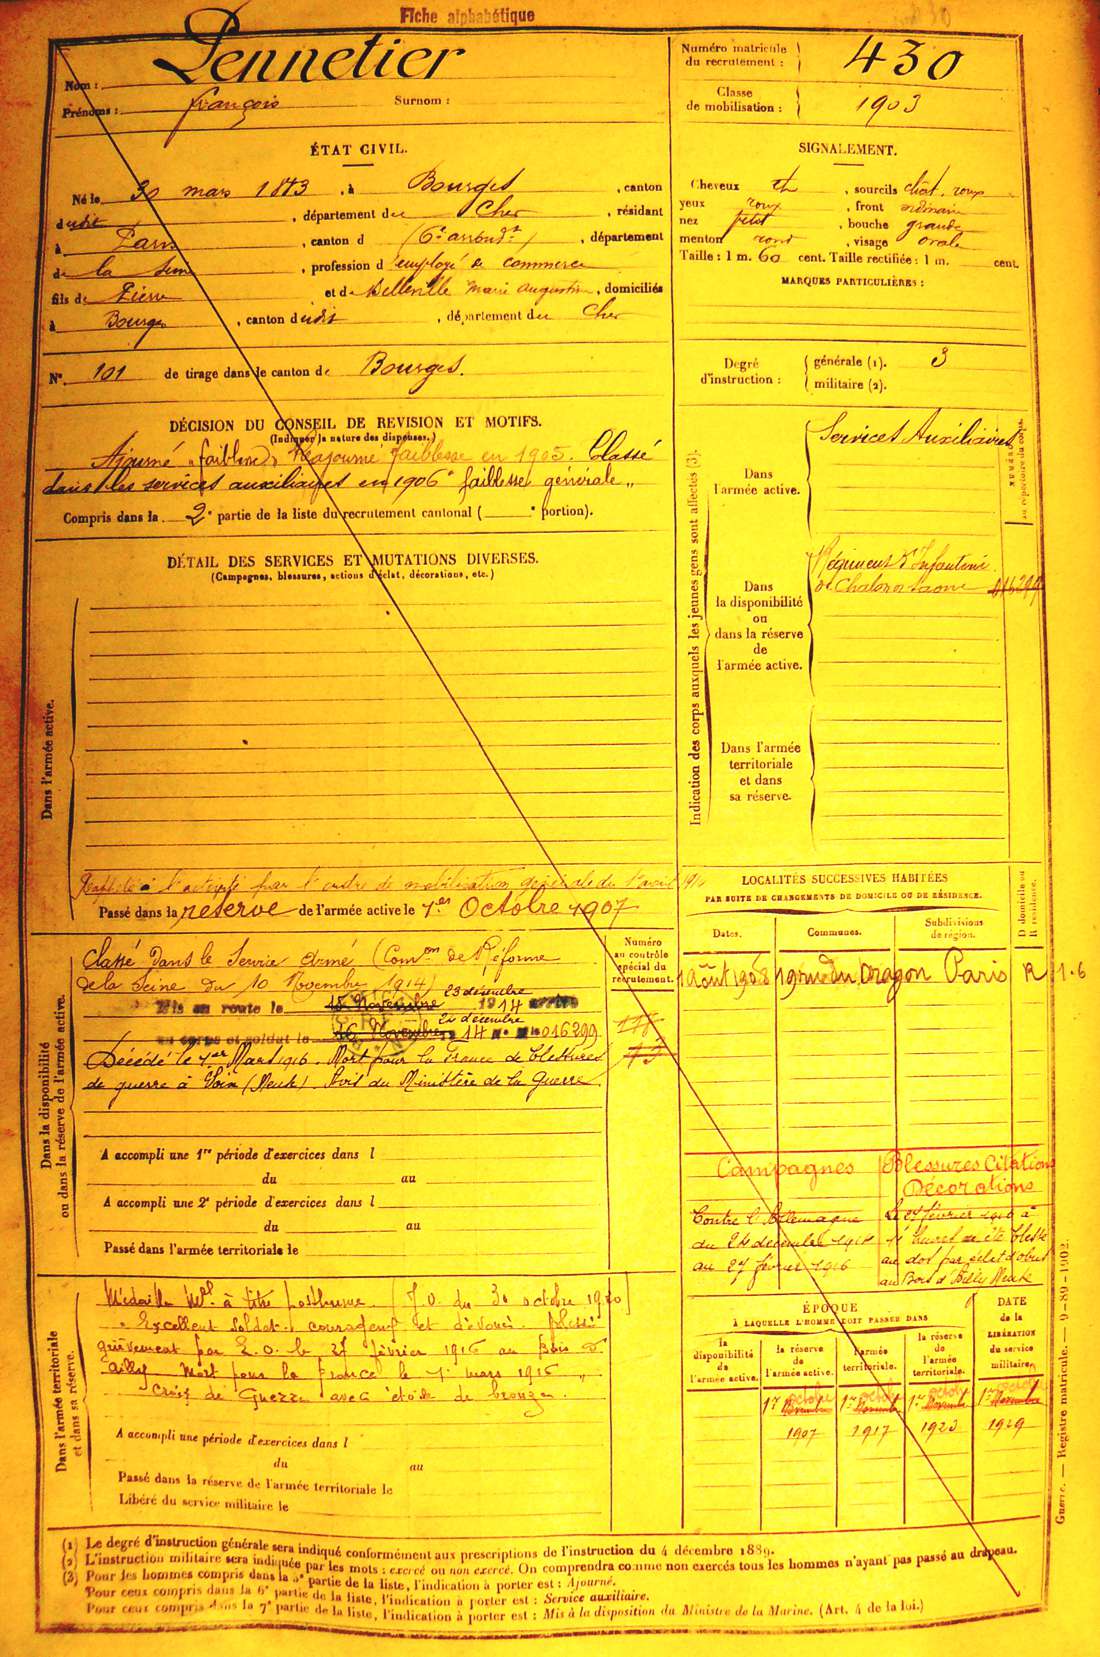 Fiche alphabétique
Nom : Pennetier
Prénoms : françois Surnom :
Numéro matricule du recrutement : 430
Classe de mobilisation : 1903
ÉTAT CIVIL.
Né le 30 mars 1883, à Bourges, canton
dudit, département du Cher, résidant
à Paris, canton d (6e arrondt), département
de la Seine, profession d employé de commerce
fils de Pierre et de Belleville Marie Augustine, domiciliés
à Bourges, canton dudit, département du Cher
N° 101 de tirage dans le canton de Bourges.
SIGNALEMENT.
Cheveux ch, sourcils chat. roux
yeux roux, front ordinaire
nez petit, bouche grande
menton rond, visage ovale
Taille : 1 m. 60 cent. Taille rectifiée : 1 m. cent.
MARQUES PARTICULIÈRES :
Degré d'instruction : générale (1). 3
militaire (2).
DÉCISION DU CONSEIL DE REVISION ET MOTIFS.
(Indiquer la nature des dispenses.)
Ajourné "faiblesse" Réajourné faiblesse en 1905. Classé
dans les services auxiliaires en 1906 "faiblesse générale"
Compris dans la 2e partie de la liste du recrutement cantonal ( e portion).
DÉTAIL DES SERVICES ET MUTATIONS DIVERSES.
(Campagnes, blessures, actions d'éclat, décorations, etc.)
Dans l'armée active.
Rappelé à l'activité par l'ordre de mobilisation générale du 1er août 1914
Passé dans la réserve de l'armée active le 1er Octobre 1907
Indication des corps auxquels les jeunes gens sont affectés (3).
NUMÉRO au répertoire du corps.
Dans l'armée active.
Services Auxiliaires
Dans la disponibilité ou dans la réserve de l'armée active.
Régiment d'Infanterie
de Chalon s/ Saone 016299
Dans l'armée territoriale et dans sa réserve.
Dans la disponibilité ou dans la réserve de l'armée active.
Numéro au contrôle spécial du recrutement.
Classé Dans le Service Armé (Comon de Réforme
de la Seine du 10 Novembre 1914)
Mis en route le 15 Novembre 23 décembre 1914 arrivé
au corps et soldat le 26 Novembre 24 décembre 14 n° mle 016299
Décédé le 1er Mars 1916. Mort pour la France de blessures
de guerre à Voix (Meuse). Avis du Ministère de la Guerre
A accompli une 1re période d'exercices dans l
du au
A accompli une 2e période d'exercices dans l
du au
Passé dans l'armée territoriale le
LOCALITÉS SUCCESSIVES HABITÉES
PAR SUITE DE CHANGEMENTS DE DOMICILE OU DE RÉSIDENCE.
Dates. Communes. Subdivisions de région. D domicile ou R résidence.
1 août 1908 19 rue du Dragon Paris R 1.6
Campagnes
Contre l'Allemagne
du 24 décembre 1914
au 27 février 1916
Blessures Citations Décorations
Le 27 février 1916 à
heures a été blessé
au dos par éclat d'obus
au Bois d'Ailly Meuse
Dans l'armée territoriale et dans sa réserve.
Médaille Mre à titre posthume. (J.O. du 30 octobre 1920)
"Excellent soldat courageux et dévoué. blessé
grièvement par E.O. le 27 février 1916 au Bois d'
Ailly mort pour la France le 1er mars 1916"
Croix de Guerre avec étoile de bronze.
A accompli une période d'exercices dans l
du au
Passé dans la réserve de l'armée territoriale le
Libéré du service militaire le
ÉPOQUE
À LAQUELLE L'HOMME DOIT PASSER DANS
la disponibilité de l'armée active.
la réserve de l'armée active.
l'armée territoriale.
la réserve de l'armée territoriale.
DATE de la LIBÉRATION du service militaire.
1er octobre Novembre 1907
1er octobre Novembre 1917
1er octobre Novembre 1923
1er octobre Novembre 1929
Guerre. — Registre matricule. — 9-89-1902.
(1) Le degré d'instruction générale sera indiqué conformément aux prescriptions de l'instruction du 4 décembre 1889.
(2) L'instruction militaire sera indiquée par les mots : exercé ou non exercé. On comprendra comme non exercés tous les hommes n'ayant pas passé au drapeau.
(3) Pour les hommes compris dans la 5e partie de la liste, l'indication à porter est : Ajourné.
Pour ceux compris dans la 6e partie de la liste, l'indication à porter est : Service auxiliaire.
Pour ceux compris dans la 7e partie de la liste, l'indication à porter est : Mis à la disposition du Ministre de la Marine. (Art. 4 de la loi.)